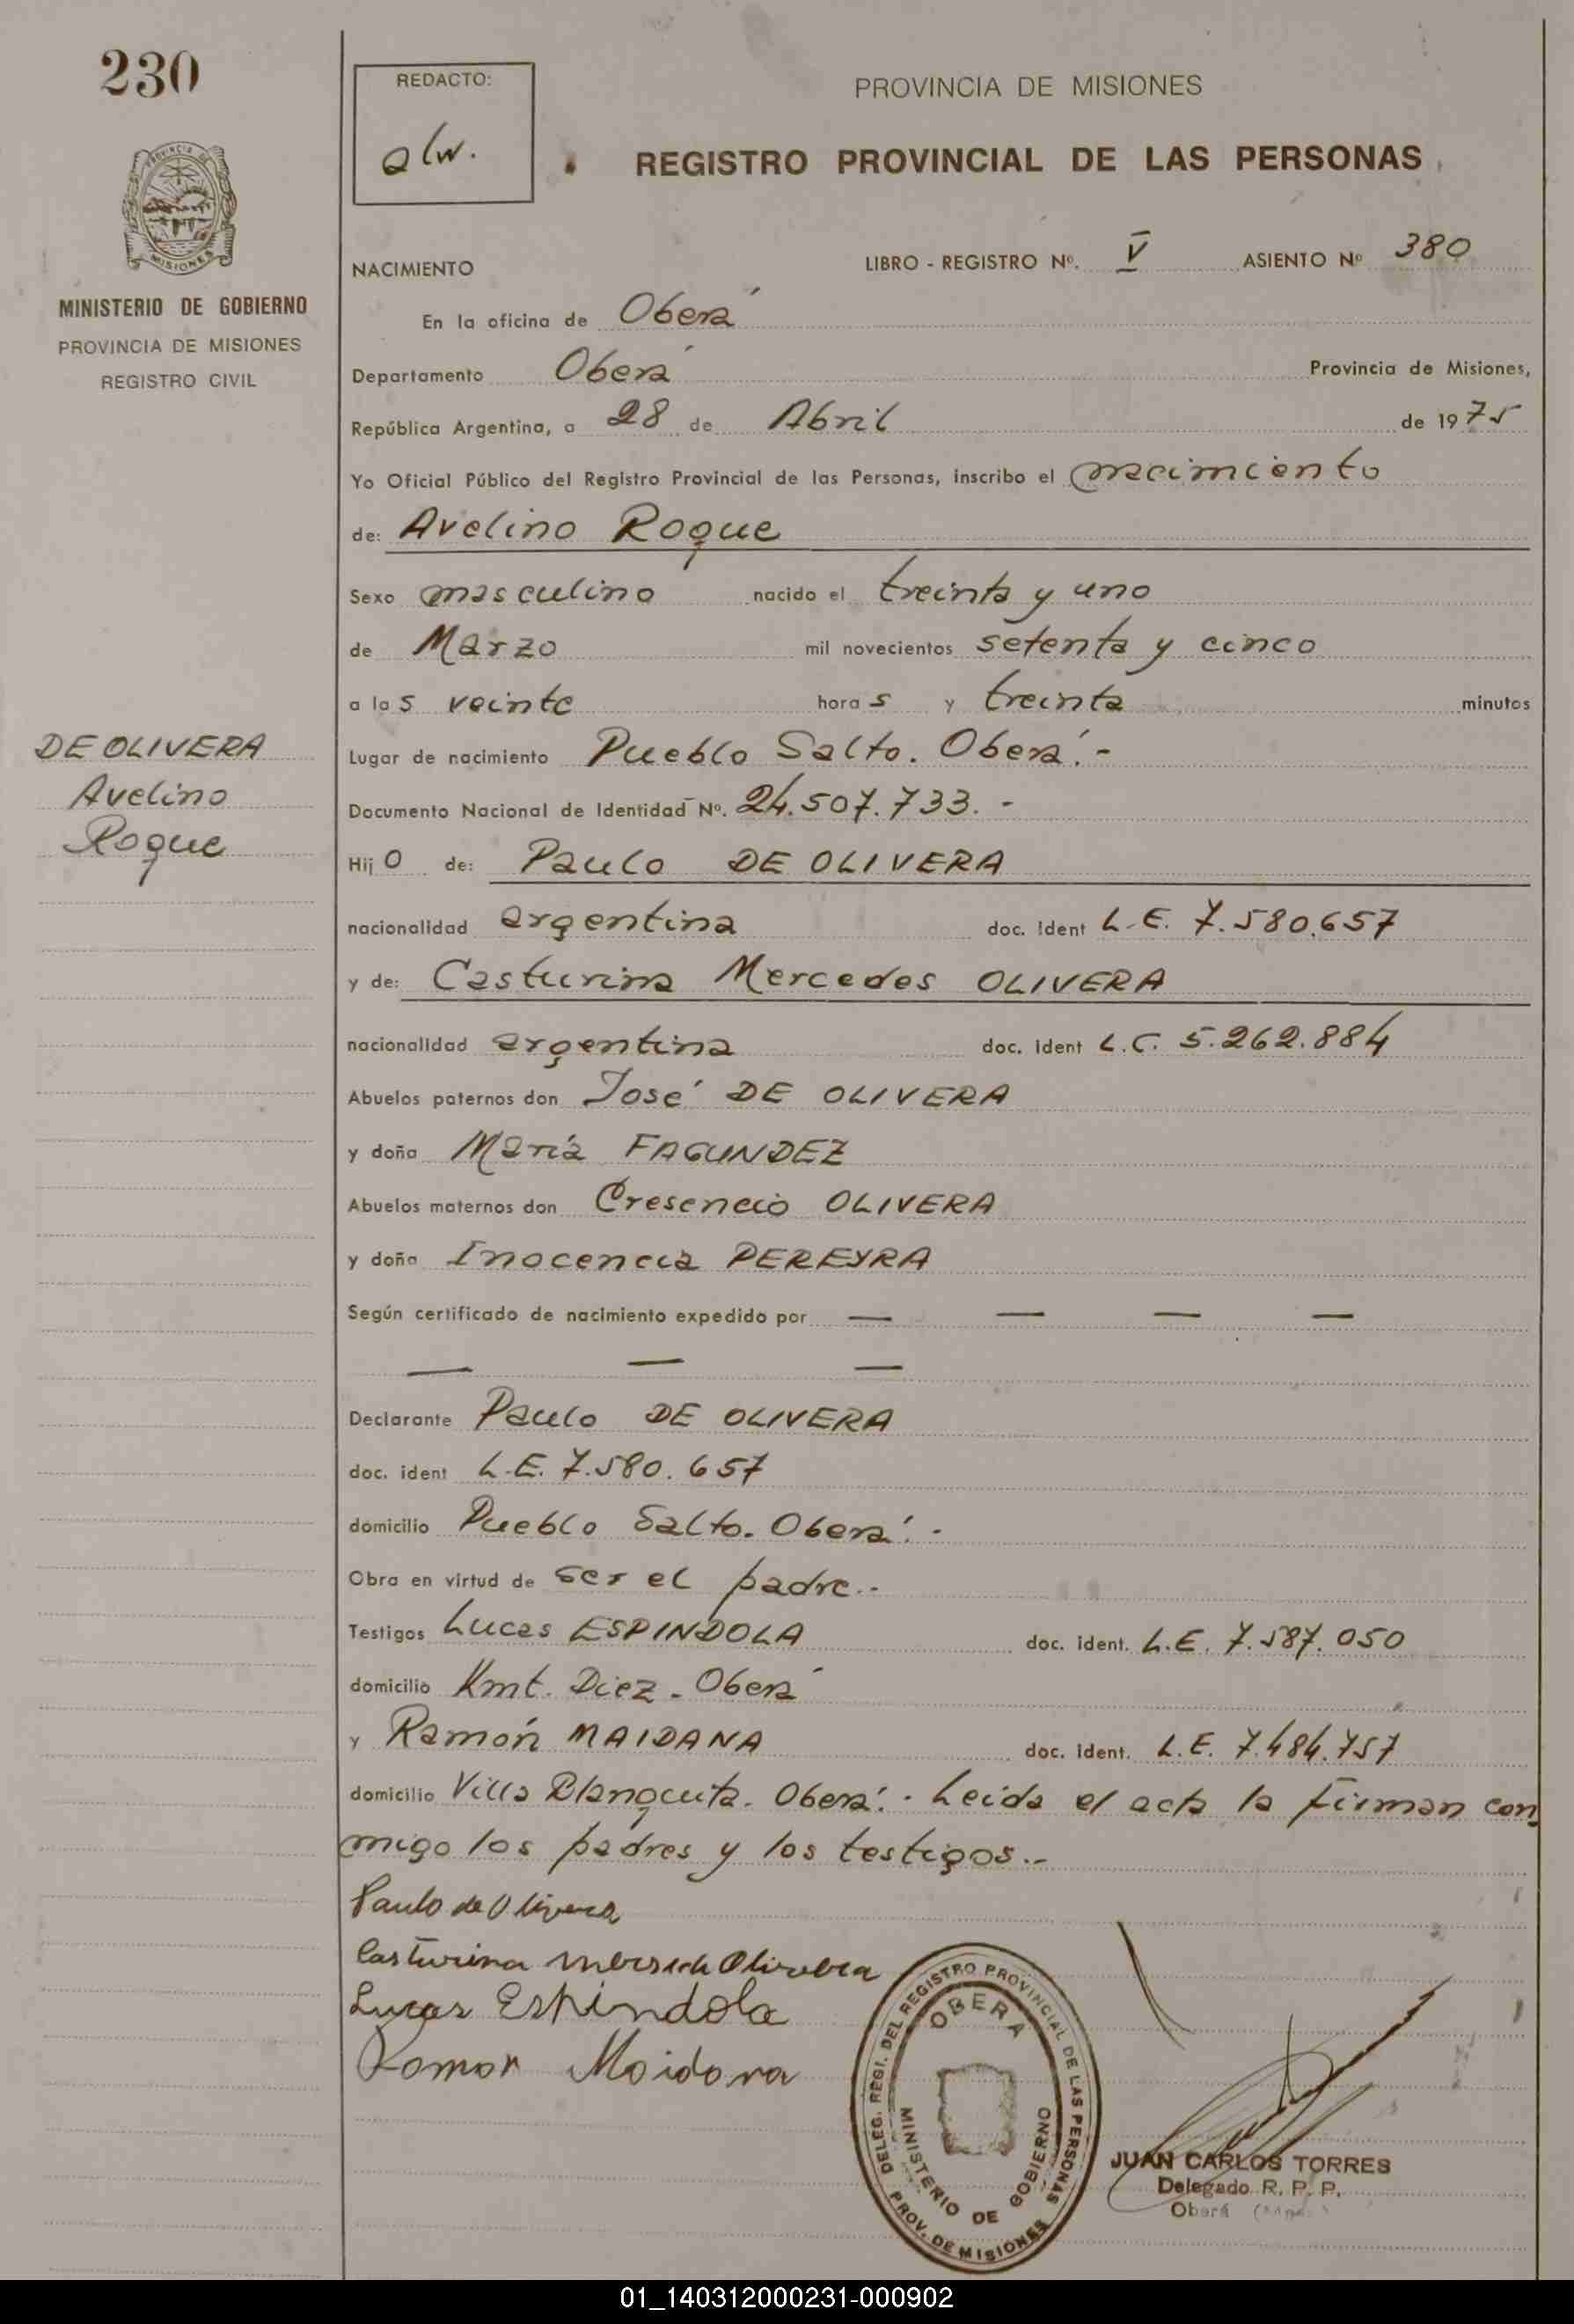 230
REDACTO:
alw.
PROVINCIA DE MISIONES
REGISTRO PROVINCIAL DE LAS PERSONAS
PROVINCIA DE
MISIONES
MINISTERIO DE GOBIERNO
PROVINCIA DE MISIONES
REGISTRO CIVIL
NACIMIENTO
LIBRO - REGISTRO Nº. V ASIENTO Nº 380
En la oficina de Oberá
Departamento Oberá Provincia de Misiones,
República Argentina, a 28 de Abril de 1975
Yo Oficial Público del Registro Provincial de las Personas, inscribo el nacimiento
de: Avelino Roque
Sexo masculino nacido el treinta y uno
de Marzo mil novecientos setenta y cinco
a las veinte horas y treinta minutos
DE OLIVERA
Avelino
Roque
Lugar de nacimiento Pueblo Salto. Oberá.-
Documento Nacional de Identidad Nº. 24.507.733.-
Hijo de: Paulo DE OLIVERA
nacionalidad argentina doc. ident L.E. 7.580.657
y de: Casturina Mercedes OLIVERA
nacionalidad argentina doc. ident L.C. 5.262.884
Abuelos paternos don José DE OLIVERA
y doña María FAGUNDEZ
Abuelos maternos don Cresencio OLIVERA
y doña Inocencia PEREYRA
Según certificado de nacimiento expedido por — — — —
— — —
Declarante Paulo DE OLIVERA
doc. ident L.E. 7.580.657
domicilio Pueblo Salto. Oberá.-
Obra en virtud de ser el padre.-
Testigos Lucas ESPINDOLA doc. ident. L.E. 7.587.050
domicilio Kmt. Diez - Oberá
y Ramón MAIDANA doc. ident. L.E. 7.484.757
domicilio Villa Blanquita. Oberá.- Leída el acta la firman con
migo los padres y los testigos.-
Paulo de Olivera
Casturina Olivera
Lucas Espindola
Ramon Maidana
DELEG. REGI. DEL REGISTRO PROVINCIAL DE LAS PERSONAS
OBERA
MINISTERIO DE GOBIERNO
PROV. DE MISIONES
JUAN CARLOS TORRES
Delegado R. P. P.
Oberá
01_140312000231-000902